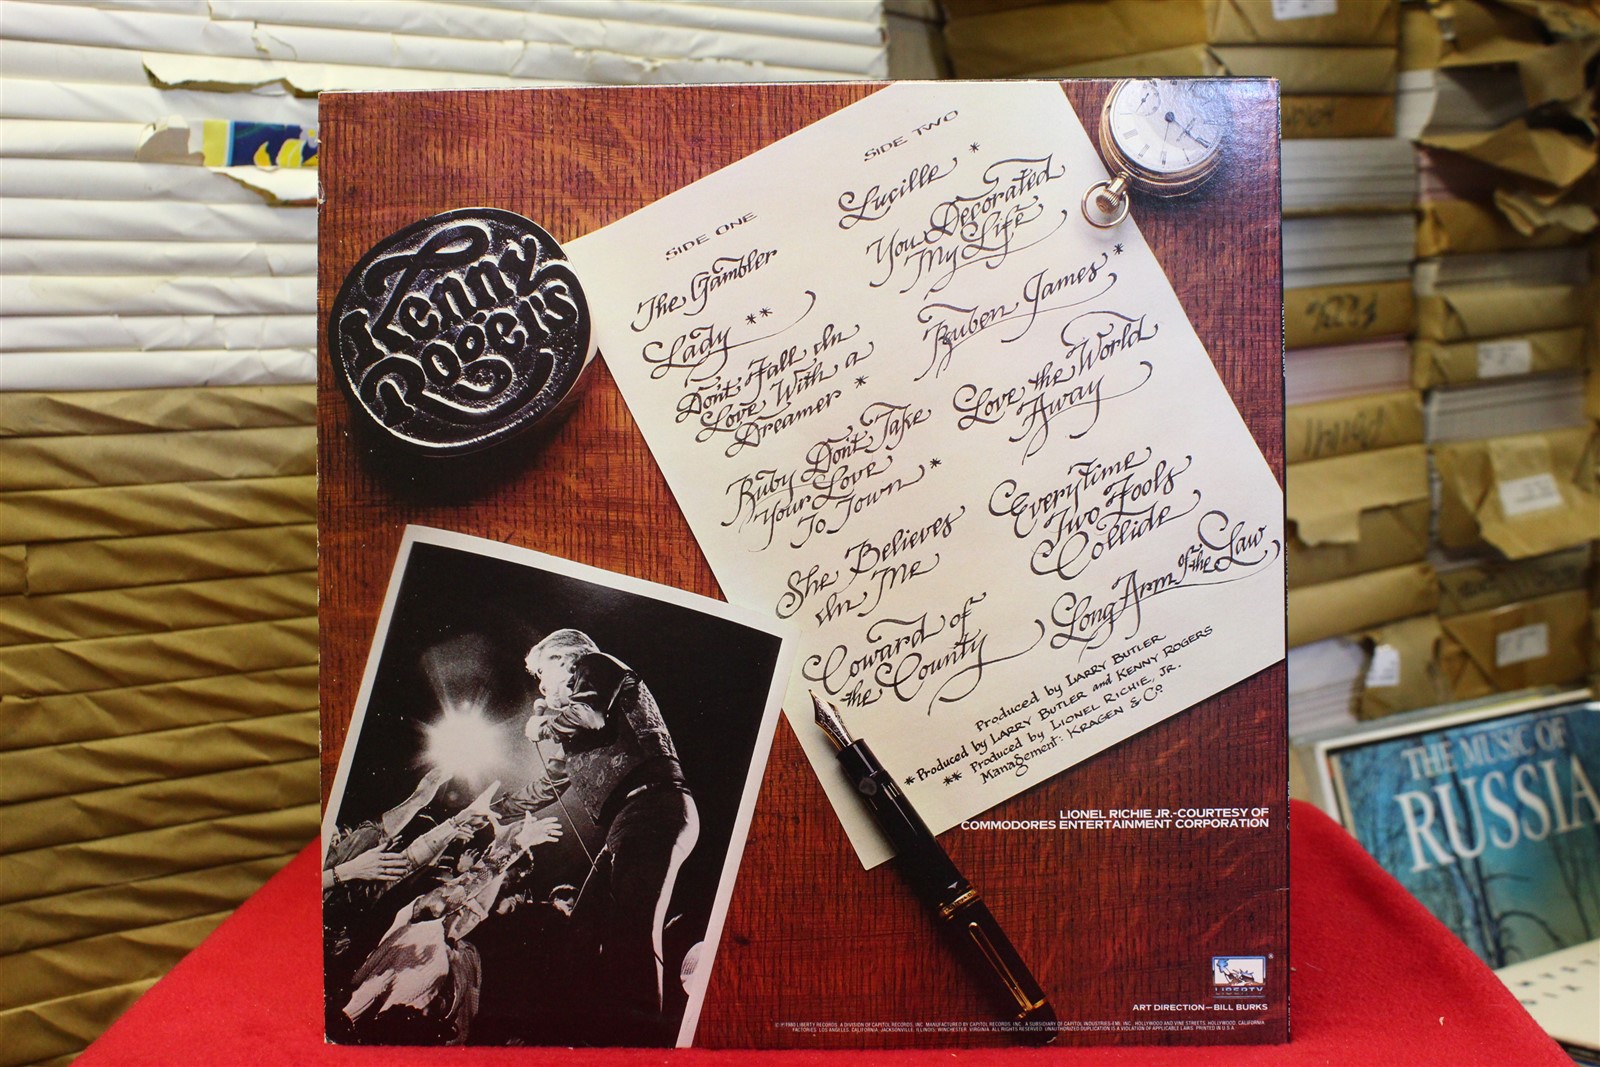 Kenny
Rogers
SIDE ONE
The Gambler
Lady **
Don't Fall In
Love With a
Dreamer *
Ruby Don't Take
Your Love
To Town *
She Believes
In Me
Coward of
the County
SIDE TWO
Lucille *
You Decorated
My Life
Reuben James *
Love the World
Away
Everytime
Two Fools
Collide
Long Arm of the Law
Produced by LARRY BUTLER
* Produced by LARRY BUTLER and KENNY ROGERS
** Produced by LIONEL RICHIE, JR.
Management: KRAGEN & Co
LIONEL RICHIE JR.-COURTESY OF
COMMODORES ENTERTAINMENT CORPORATION
LIBERTY
ART DIRECTION—BILL BURKS
© ℗ 1980 LIBERTY RECORDS, A DIVISION OF CAPITOL RECORDS, INC. MANUFACTURED BY CAPITOL RECORDS, INC., A SUBSIDIARY OF CAPITOL INDUSTRIES-EMI, INC. HOLLYWOOD AND VINE STREETS, HOLLYWOOD, CALIFORNIA
FACTORIES: LOS ANGELES, CALIFORNIA; JACKSONVILLE, ILLINOIS; WINCHESTER, VIRGINIA. ALL RIGHTS RESERVED. UNAUTHORIZED DUPLICATION IS A VIOLATION OF APPLICABLE LAWS. PRINTED IN U.S.A.
THE MUSIC OF
RUSSIA